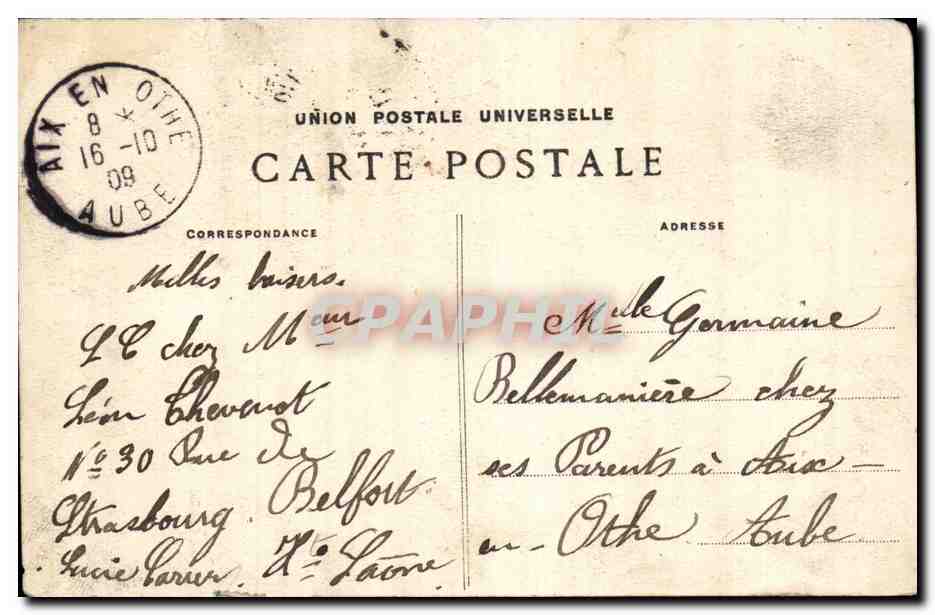 AIX EN OTHE
8 *
16 -10
09
AUBE
UNION POSTALE UNIVERSELLE
CARTE POSTALE
CORRESPONDANCE
ADRESSE
Milles baisers.
LC chez Meur
Léon Thevenot
No 30 Rue de
Strasbourg. Belfort.
Lucie Carrer. Hte Saône
CPAPHIL
Mlle Germaine
Bellemanière chez
ses Parents à Aix-
en-Othe Aube